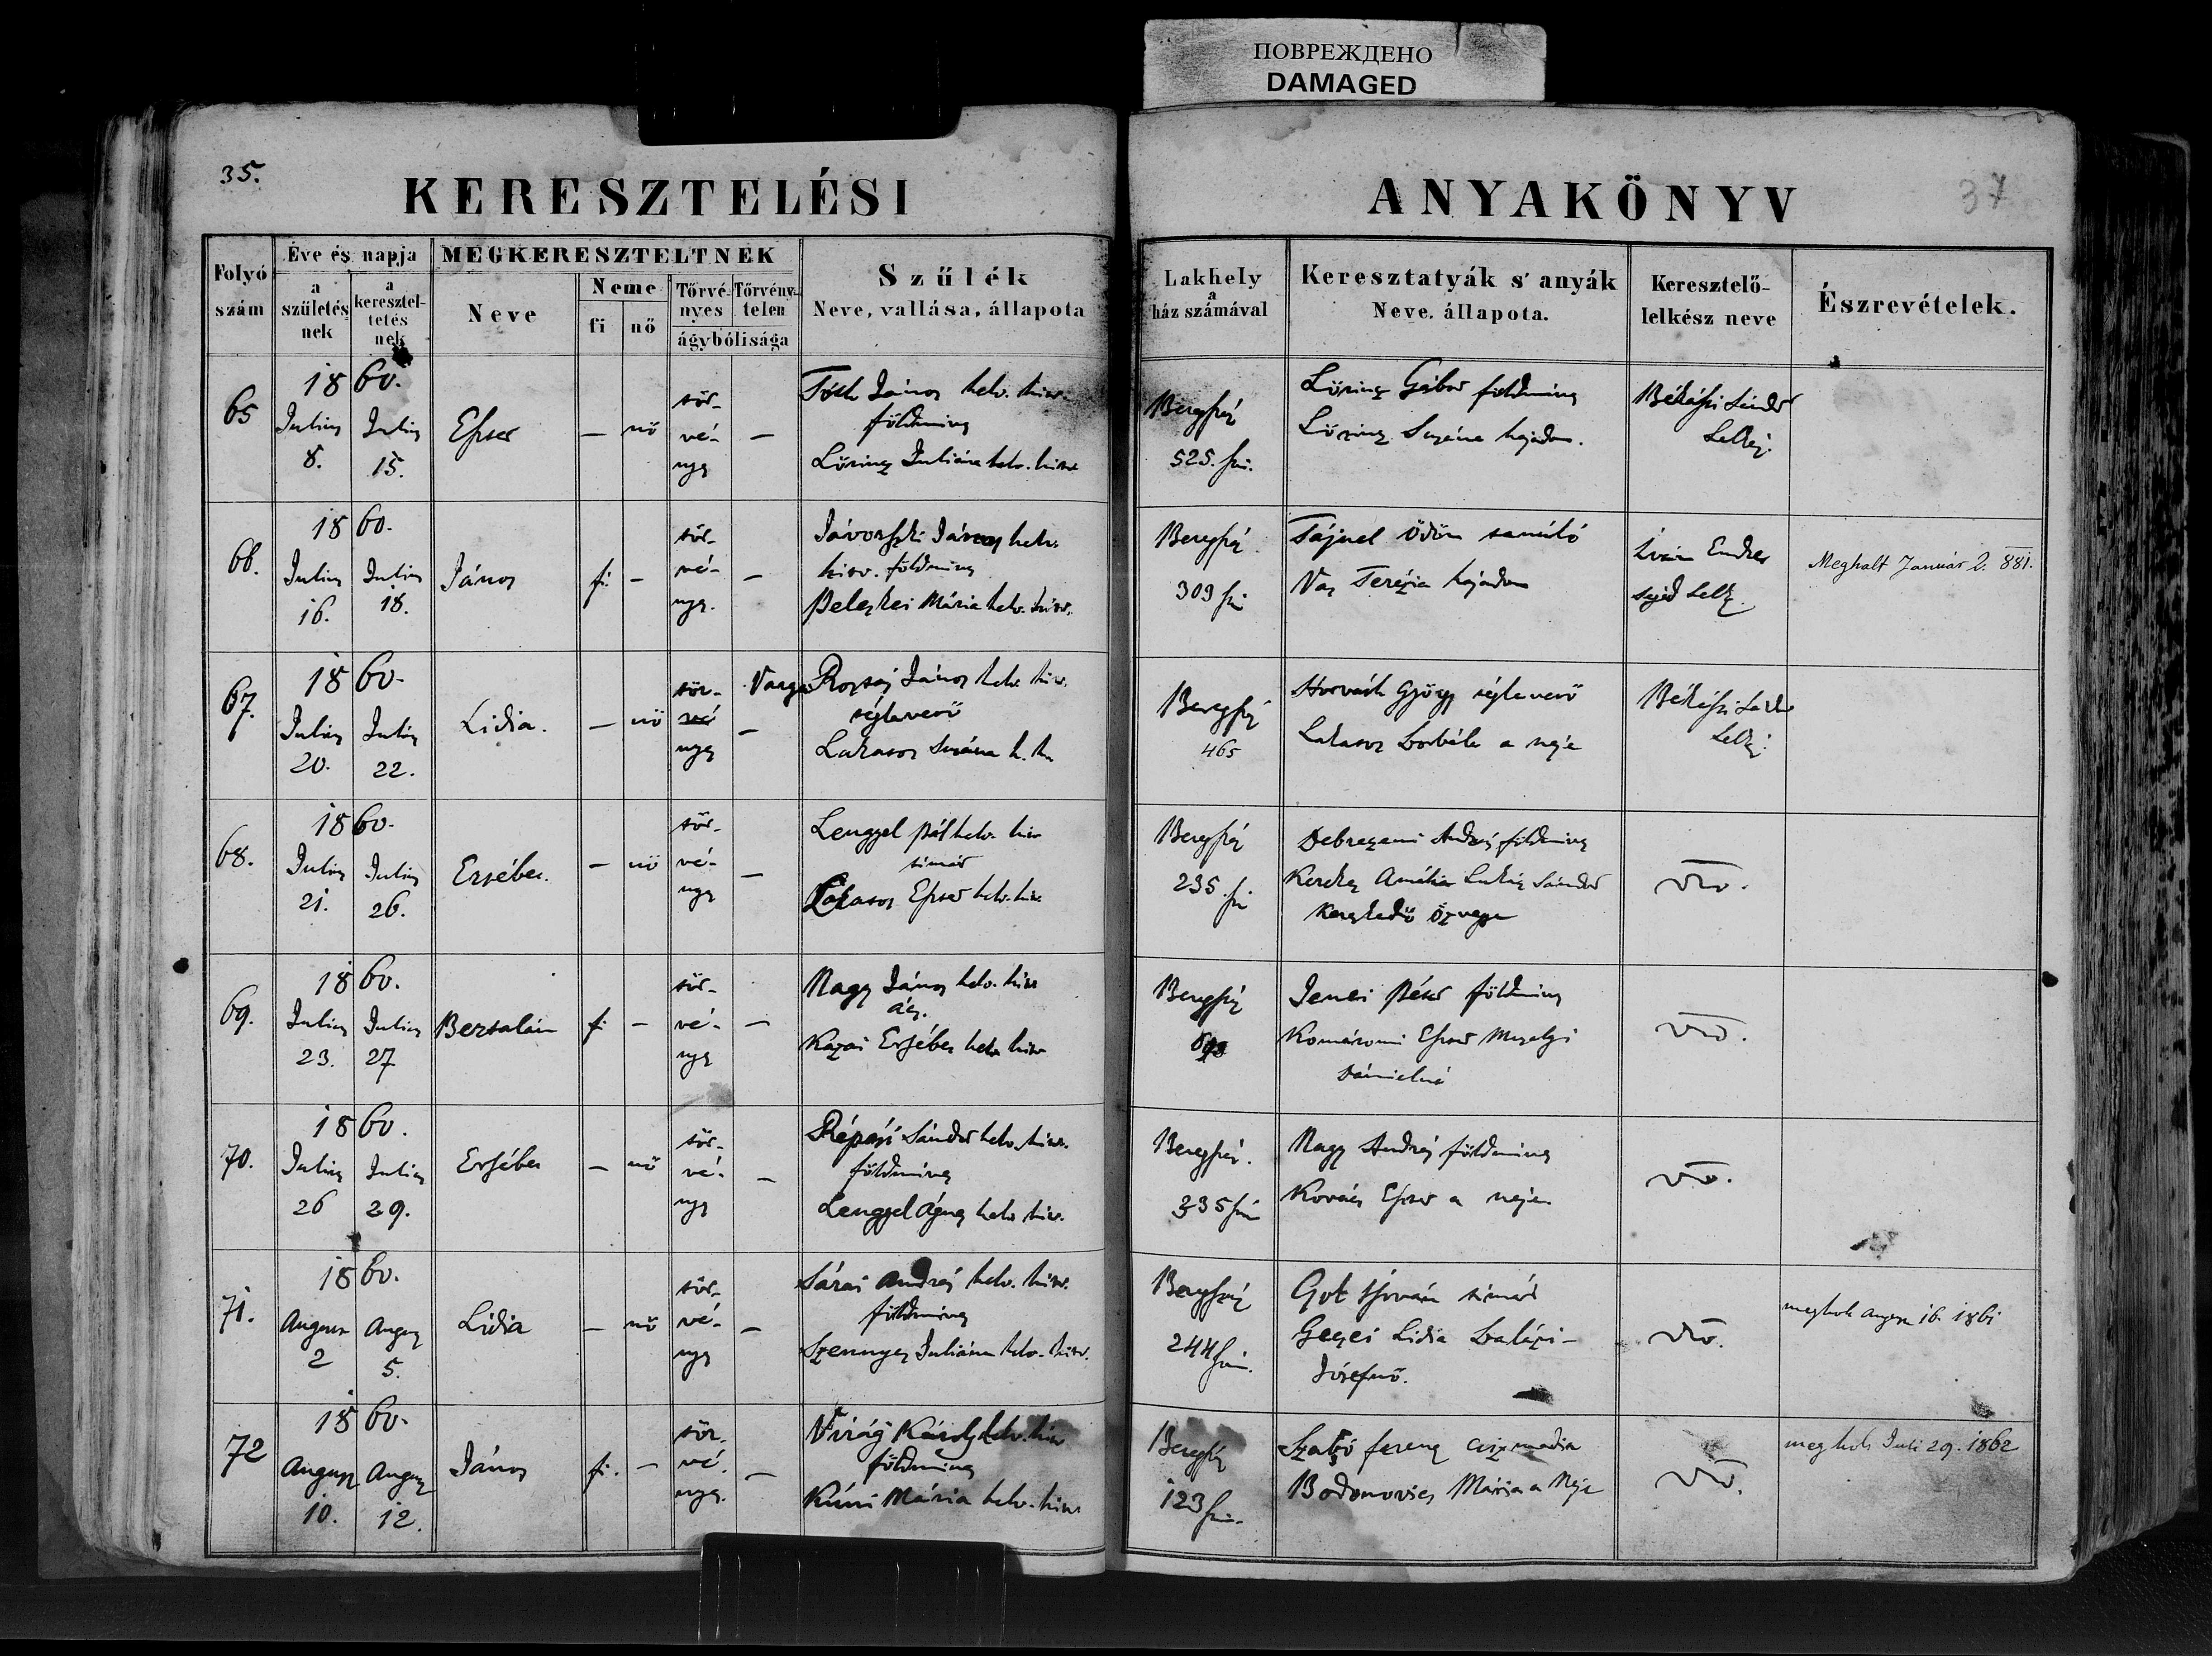 ПОВРЕЖДЕНО
DAMAGED
35.
KERESZTELÉSI
ANYAKÖNYV
37
Folyó szám
Éve és napja
a születésnek
a kereszteltetésnek
MEGKERESZTELTNEK
Neve
Neme
fi
nő
Törvényes
Törvénytelen
ágybólisága
Szűlék
Neve, vallása, állapota
Lakhely
a
ház számával
Keresztatyák s' anyák
Neve. állapota.
Keresztelő-
lelkész neve
Észrevételek.
65
1860.
Julius 8.
Julius 15.
Eszter
—
nő
törvényes
—
Tóth János helv. hitv.
földmives
Lőrincz Juliána helv. hitv.
Beregszász
525. szá.
Lőrincz Gábor földmives
Lőrincz Suzána hajadon.
Békássi Sándor
Lelkész.
66.
1860.
Julius 16.
Julius 18.
János
fi
—
törvényes.
—
Jávorszki János helv.
hitv. földmives
Peleskei Mária helv. hitv.
Beregszász
309 szá
Tájnel Ödön tanúló
Vas Terézia hajadon
Iván Endre
segéd Lelk.
Meghalt Január 2. 881.
67.
1860.
Julius 20.
Julius 22.
Lidia.
—
nő
törvényes
—
Varga Rozsás János helv. hitv.
téglaverő
Lakatos Suzána h. h.
Beregszász
465
Horváth György téglaverő
Lakatos Borbála a neje
Békássi Sándor
Lelkész.
68.
1860.
Julius 21.
Julius 26.
Ersébet.
—
nő
törvényes
—
Lengyel Pál helv. hitv
timár
Lakatos Eszter helv. hitv.
Beregszász
235. szá
Debreczeni András földmives
Amália Lukács Sándor
Kereskedő özvegye
69.
1860.
Julius 23.
Julius 27
Bertalan
fi
—
törvényes
—
Nagy János helv. hitv
ács.
Kazai Ersébet helv. hitv
Beregszász
Jenei Péter földmives
Komáromi Eszter
Dánielné
70.
1860.
Julius 26
Julius 29.
Ersébet
—
nő
törvényes
—
Répási Sándor helv. hitv.
földmives
Lengyel Ágnes helv. hitv.
Beregszász.
235 szá
Nagy András földmives
Kovács Eszter a neje.
71.
1860.
August 2
August 5.
Lidia
—
nő
törvényes
—
Sárai András helv. hitv.
földmives
Szennyes Juliána helv. hitv.
Beregszász
244 szá.
Got István timár
Geczei Lidia Balázsi
Józsefné.
meghalt August 16. 1861
72
1860.
August 10.
August 12.
János
fi.
—
törvényes.
—
Virág Károly helv. hitv
földmives
Kúni Mária helv. hitv.
Beregszász
123 szá.
Szabó Ferencz csizmadia
Bodonovics Mária a Neje
meghalt Juli 29. 1862